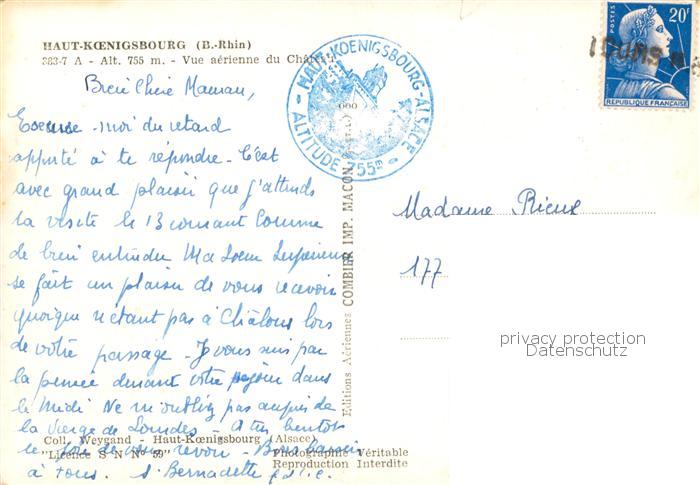 HAUT-KŒNIGSBOURG (B.-Rhin)
383-7 A - Alt. 755 m. - Vue aérienne du Château
Bien Chère Maman,
Excuse-moi du retard
apporté à te répondre - C'est
avec grand plaisir que j'attends
la visite le 13 courant comme
de bien entendu Ma Soeur Supérieure
se fait un plaisir de vous recevoir
quoique n'étant pas à Châlons lors
de votre passage - Je vous suis par
la pensée durant votre séjour dans
le Midi Ne m'oubliez pas auprès de
la Vierge de Lourdes - A très bientôt
de vous revoir - Bons baisers
à tous. Sr Bernadette
Coll. Weygand - Haut-Kœnigsbourg (Alsace)
"Licence S N N° 59"
Photographie Véritable
Reproduction Interdite
Editions Aériennes COMBIER IMP. MACON
HAUT-KOENIGSBOURG-ALSACE
ALTITUDE 755m
20F
REPUBLIQUE FRANÇAISE
Madame Rieux
177
privacy protection
Datenschutz